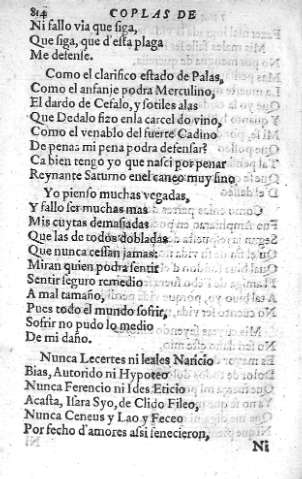 814 COPLAS DE
Ni fallo via que siga,
Que siga, que d'esta plaga
Me defense.
Como el clarifico estado de Palas,
Como el anfanje podra Merculino,
El dardo de Cefalo, y sotiles alas
Que Dedalo fizo enla carcel do vino,
Como el venablo del fuerte Cadino
De penas mi pena podra defensar?
Ca bien tengo yo que nasci por penar
Reynante Saturno enel caneo muy fino
Yo pienso muchas vegadas,
Y fallo ser muchas mas
Mis cuytas demasiadas
Que las de todos dobladas
Que nunca cessan jamas:
Miran quien podra sentir
Sentir seguro remedio
A mal tamaño,
Pues todo el mundo sofrir,
Sofrir no pudo lo medio
De mi daño.
Nunca Lecertes ni leales Naricio
Bias, Autorido ni Hypoteo
Nunca Ferencio ni Ides Eticio
Acasta, Isara Syo, de Clido Fileo,
Nunca Ceneus y Lao y Feceo
Por fecho d'amores assi fenecieron,
Ni